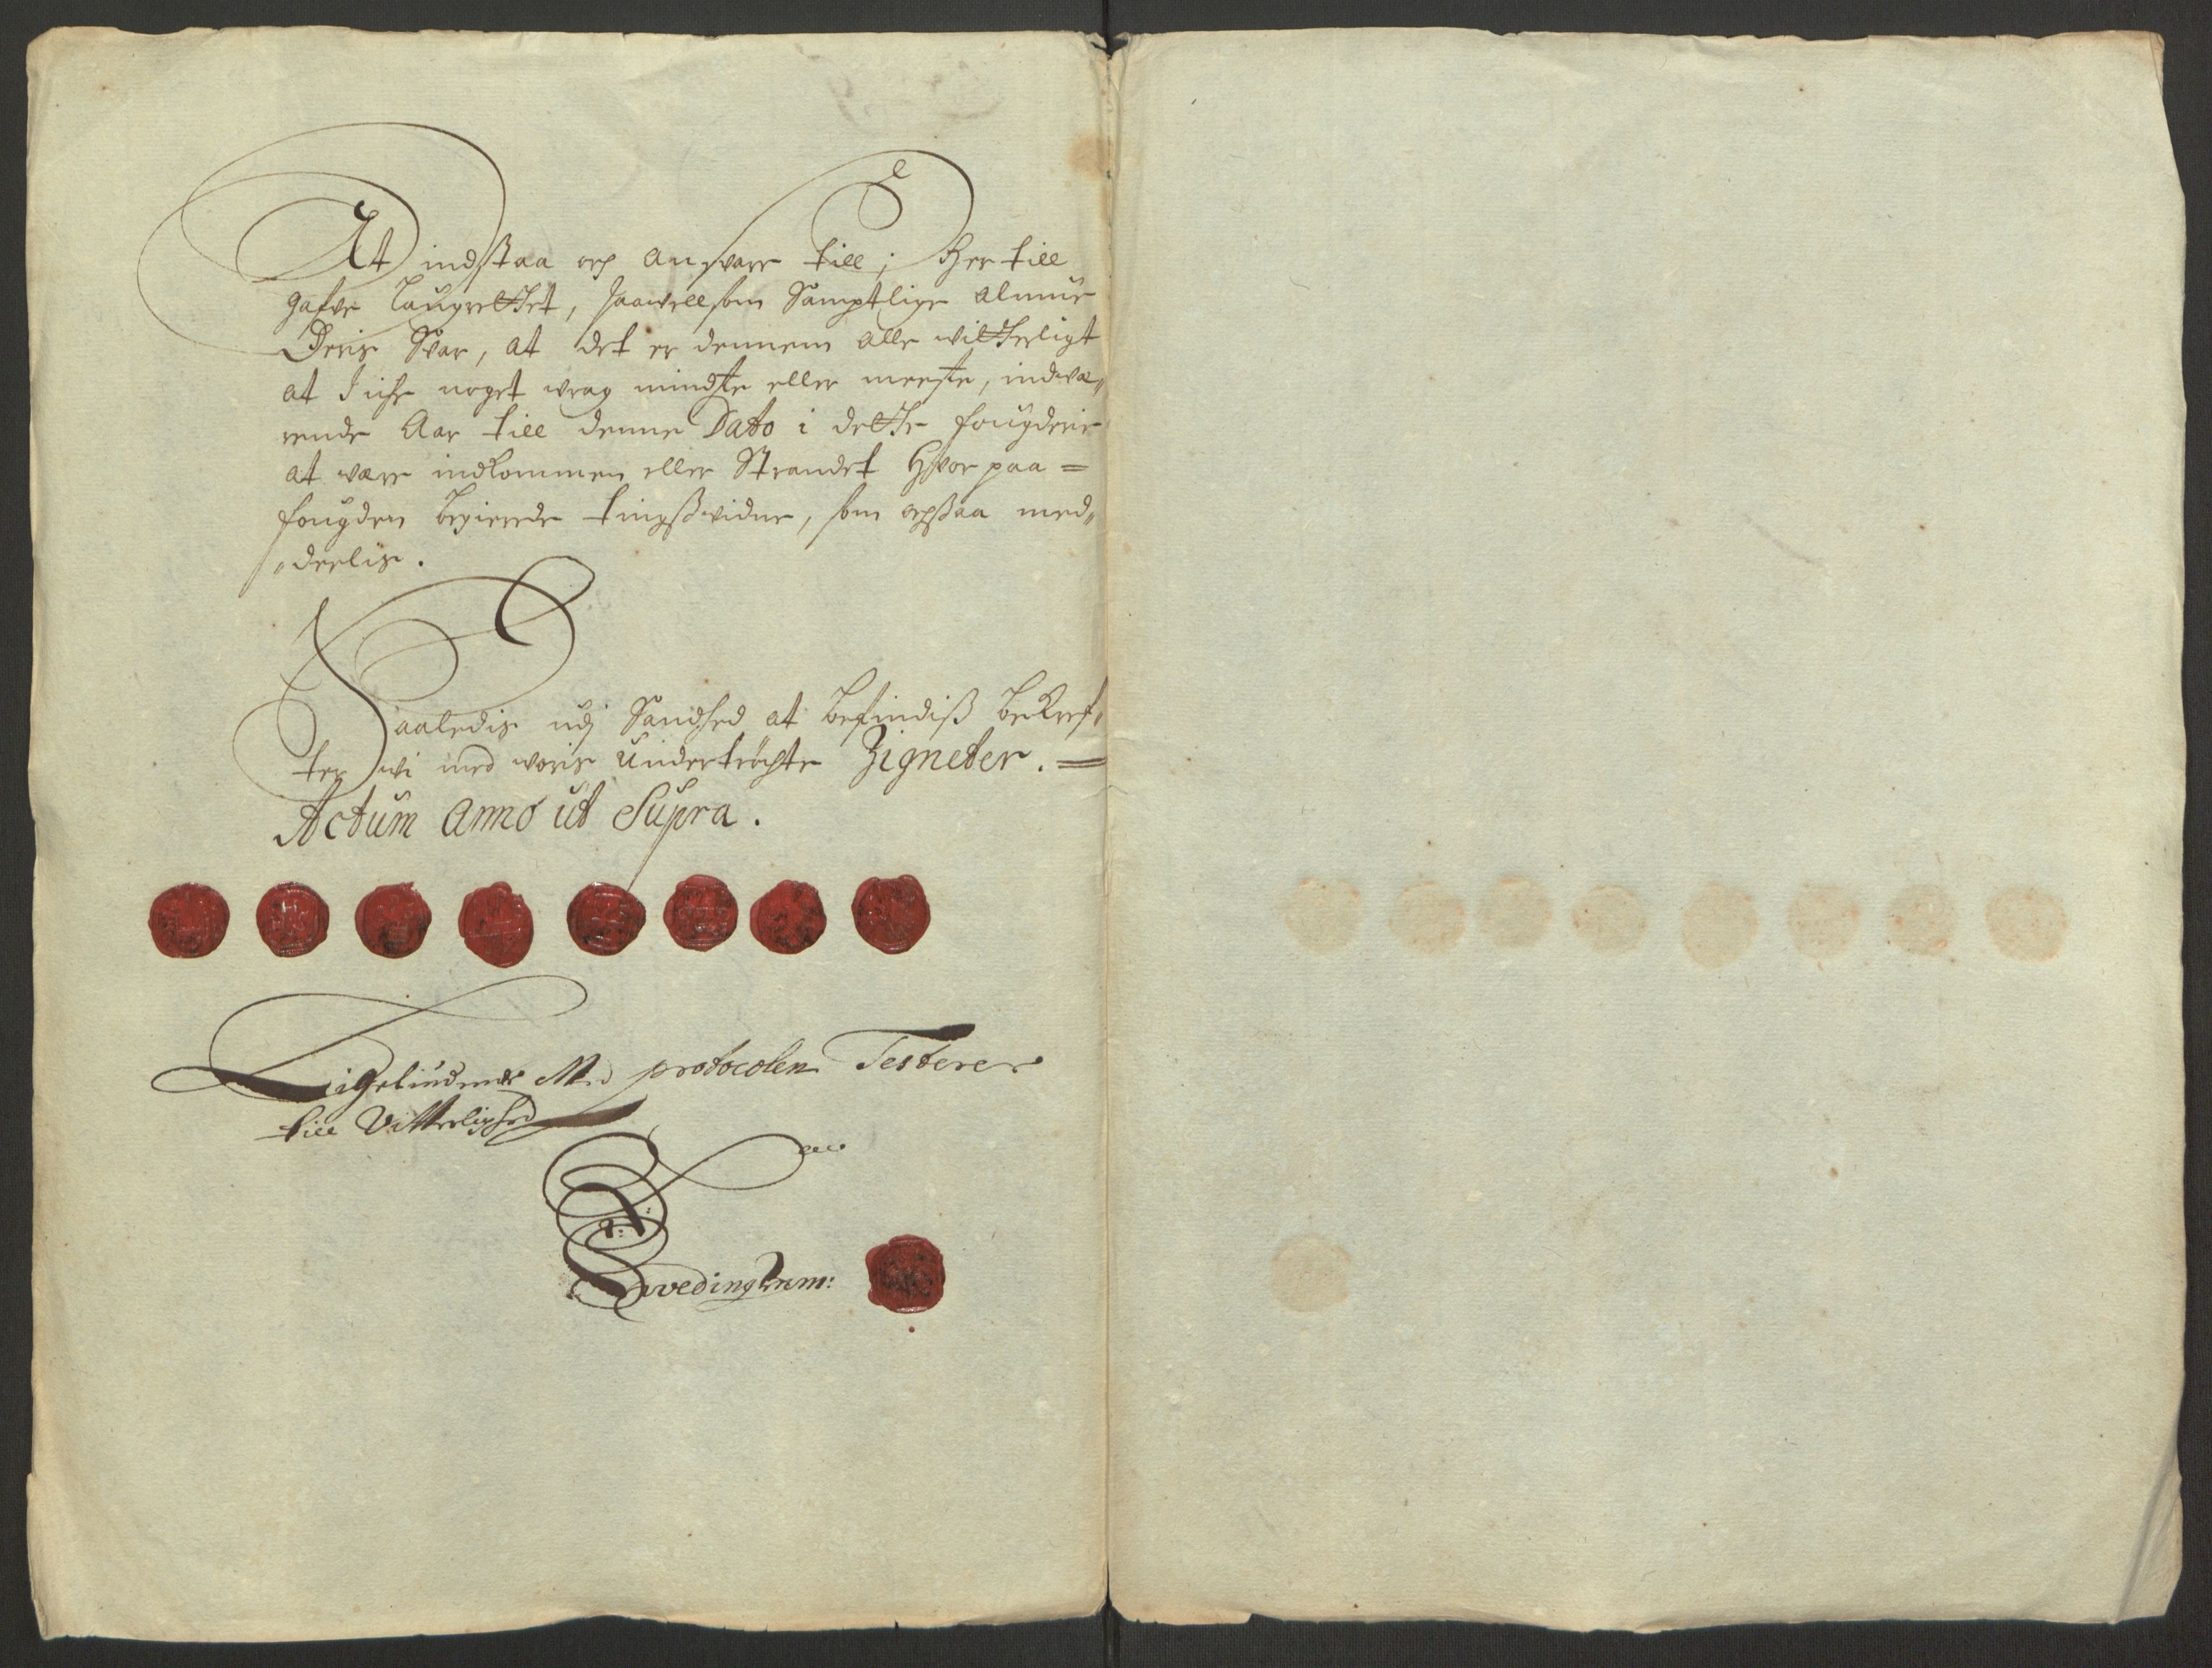 At indstaa och ansvare till; Her till
gafve Laugrettet, saavell som Samptlige Almue
Deris Svar, at det er dennem alle vitterligt
at Iche noget vrag mindste eller meeste, indvæ„
rende Aar till denne Dato i dette fougderie
at være indkommen eller Strandet Hvor paa =
fougden begierede tingsvidne, som ochsaa med„
„deelis.
Saaledis udj Sandhed at befindiß bekref„
ter vi med voris undertrøchte Zigneter. =
Actum Anno ut Supra.
Ligelÿdende Med protocolen Testerer
till Vitterlighed